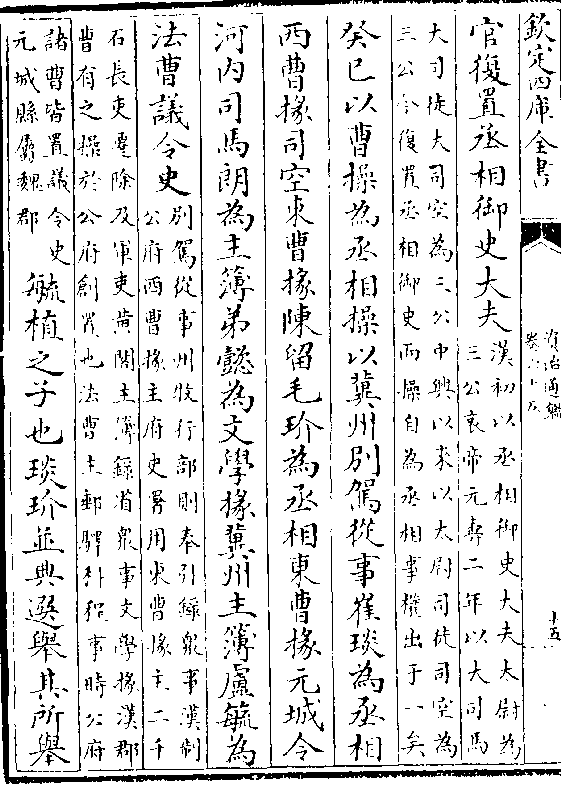 欽定四庫全書
資治通鑑
卷六十五
十五
官復置丞相御史大夫漢初以丞相御史大夫太尉為
三公哀帝元壽二年以大司馬
大司徒大司空為三公中興以來以太尉司徒司空為
三公今復置丞相御史而操自為丞相事權出于一矣
癸巳以曹操為丞相操以冀州別駕從事崔琰為丞相
西曹掾司空東曹掾陳留毛玠為丞相東曹掾元城令
河内司馬朗為主簿弟懿為文學掾冀州主簿盧毓為
法曹議令史别駕從事州牧行部則奉引錄衆事漢制
公府西曹掾主府史署用東曹掾主二千
石長吏遷除及軍吏黄閤主簿錄省衆事文學掾漢郡
曹有之操於公府創置也法曹主郵驛科程事時公府
諸曹皆置議令史
元城縣屬魏郡
毓植之子也琰玠並典選舉其所舉